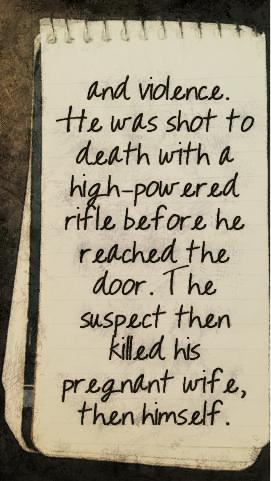 and violence.
He was shot to
death with a
high-powered
rifle before he
reached the
door. The
suspect then
killed his
pregnant wife,
then himself.